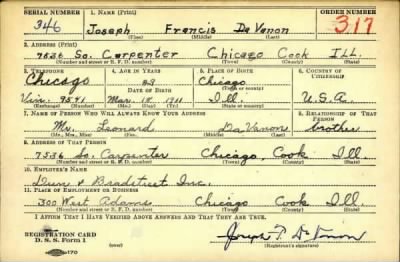 SERIAL NUMBER 1. NAME (Print) ORDER NUMBER
346 Joseph Francis DaVanon 317
(First) (Middle) (Last)
2. ADDRESS (Print)
7536 So. Carpenter Chicago Cook ILL.
(Number and street or R. F. D. number) (Town) (County) (State)
3. TELEPHONE 4. AGE IN YEARS 5. PLACE OF BIRTH 6. COUNTRY OF CITIZENSHIP
Chicago Chicago
DATE OF BIRTH
Vin. 9541 Mar. 1911 Ill. U.S.A.
(Exchange) (Number) (Mo.) (Day) (Yr.) (State or country)
7. NAME OF PERSON WHO WILL ALWAYS KNOW YOUR ADDRESS 8. RELATIONSHIP OF THAT PERSON
Mr. Leonard DaVanon brother
(Mr., Mrs., Miss) (First) (Middle) (Last)
9. ADDRESS OF THAT PERSON
7536 So. Carpenter Chicago, Cook Ill.
(Number and street or R. F. D. number) (Town) (County) (State)
10. EMPLOYER'S NAME
Dun & Bradstreet Inc.
11. PLACE OF EMPLOYMENT OR BUSINESS
300 West Adams Chicago Cook Ill.
(Number and street or R. F. D. number) (Town) (County) (State)
I AFFIRM THAT I HAVE VERIFIED ABOVE ANSWERS AND THAT THEY ARE TRUE.
REGISTRATION CARD
D. S. S. Form 1 Joseph F. DaVanon
(Registrant's signature)